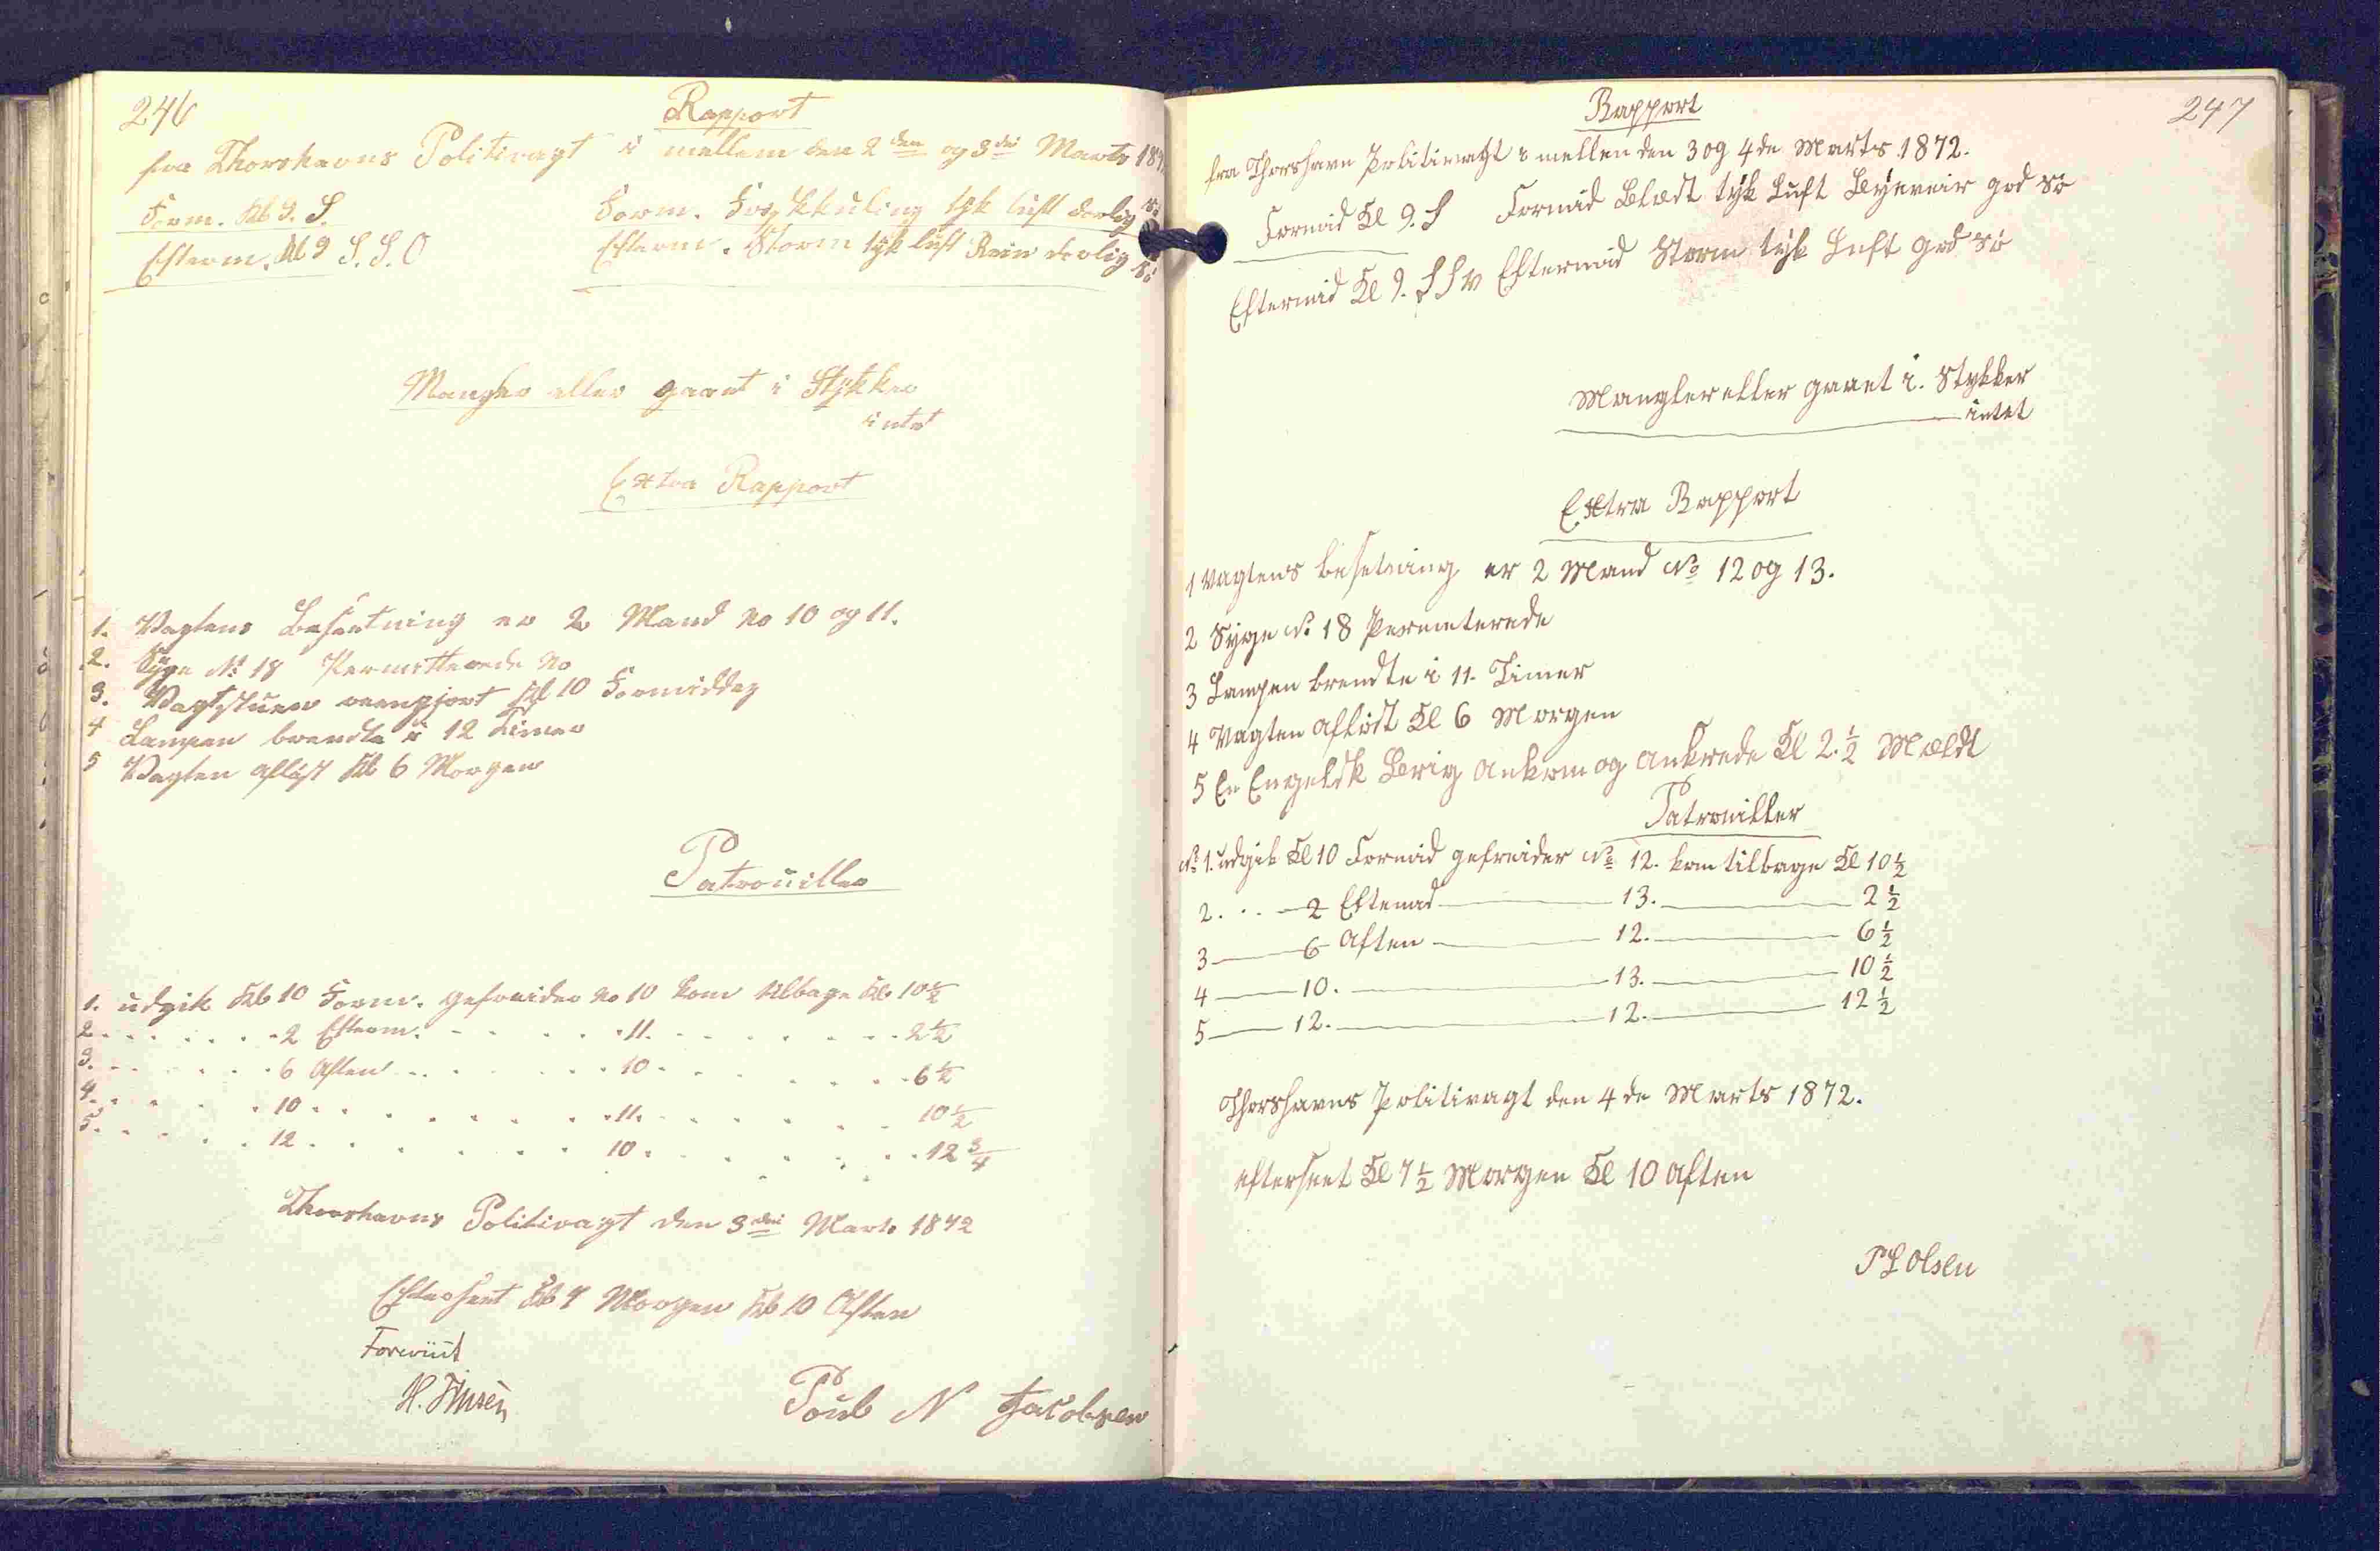 246
Rapport
fra Thorshavns Politivagt i mellem den 2den og 3die Marts 187
Form. Kl 9. S. Form. Friskkuling tyk luft darlig Sö
Efterm. Kl 9 S.S.O Efterm. Storm tyk luft Rein darlig Sö
Mangler eller gaaet i Stykker
intet
Extra Rapport
1. Vagtens Besætning er 2 Mand No 10 og 11.
2. Syge No 18 Permitterede No
3. Vagtstuen reengjort Kl 10 Formiddag
4 Lampen brendte i 12 Timer
5 Vagten aflöst Kl 6 Morgen
Patrouiller
1. udgik Kl 10 Form. gefreider No 10 kom tilbage Kl. 10½
2. . . . . . . 2 Efterm. . . . . . 11. . . . . . . . 2½
3. . . . . . . 6 Aften . . . . . . 10 . . . . . . . . 6½
4. . . . . . 10 . . . . . . . . 11. . . . . . . . 10½
5. . . . . . 12 . . . . . . . . 10 . . . . . . . . 12¾
Thorshavns Politivagt den 3die Marts 1872
Efterseet Kl 7 Morgen Kl 10 Aften
Foreviist
H.
Poul N Jacobsen
247
Rapport
fra Thorshavn Politivagt i mellen den 3 og 4de Marts 1872.
Formid Kl 9. S Formid Blædt tyk Luft Byeveir god Sö
Eftermid Kl 9. S S V Eftermid Storm tyk Luft god Sö
Mangler eller gaaet i. Stykker
intet
Extra Rapport
1 Vagtens besetning er 2 Mand No 12 og 13.
2 Syge No 18 Permeterede
3 Lampen brendte i 11. Timer
4 Vagten aflöst Kl 6 Morgen
5 En Engelsk Brig ankom og ankrede Kl 2.½ Mældt
Patrouiller
No 1. udgik Kl 10 Formid gefreider No 12. kom tilbage Kl 10½
2. . . — 2 Eftemad — 13. — 2½
3 — 6 Aften — 12. — 6½
4 — 10. — 13. — 10½
5 — 12. — 12. — 12½
Thorshavns Politivagt den 4de Marts 1872.
efterseet Kl 7½ Morgen Kl 10 Aften
Olsen